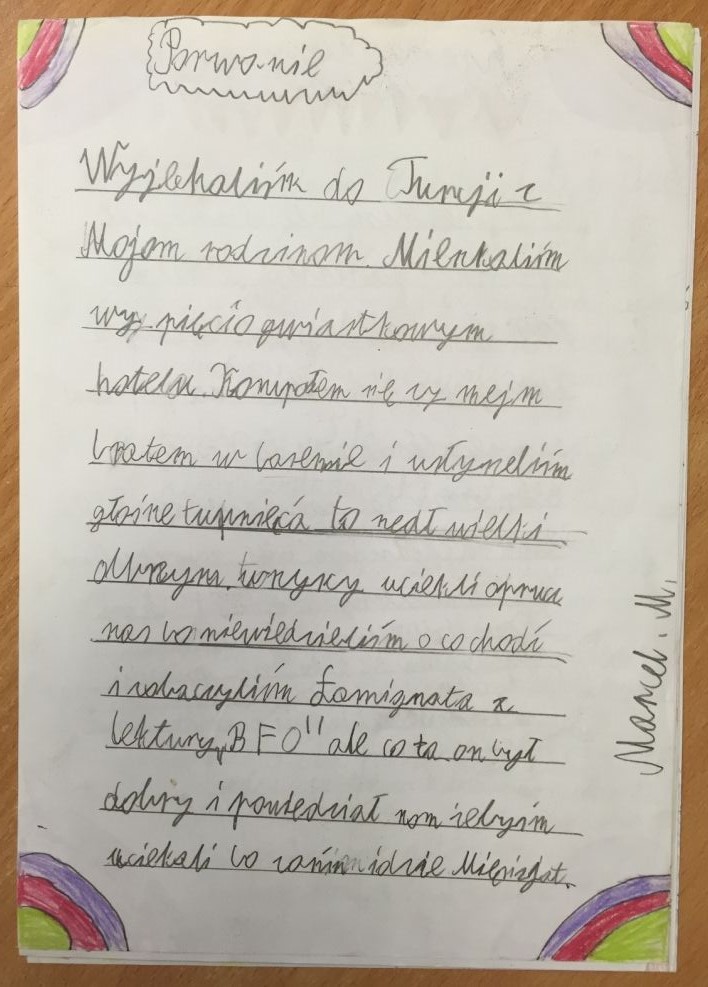 Porwanie
Wyjehaliśm do Turcji z
Mojom rodzinom. Mieszkaliśm
wy pięcio gwiastkowym
hotelu. Kompałem się zy mojm
bratem w basenie i usłyszeliśm
głośne tupnięća to szedł wielki
olbrzym. wszyscy uciekli opruc
nas bo niewiedzieliśm o co chodźi
i zobaczyliśm Łamignata z
lektury „BFO" ale co to on był
dobry i powiedział nam żebyśm
uciekali bo zanim idzie Mięsiżat.
Marcel. M.